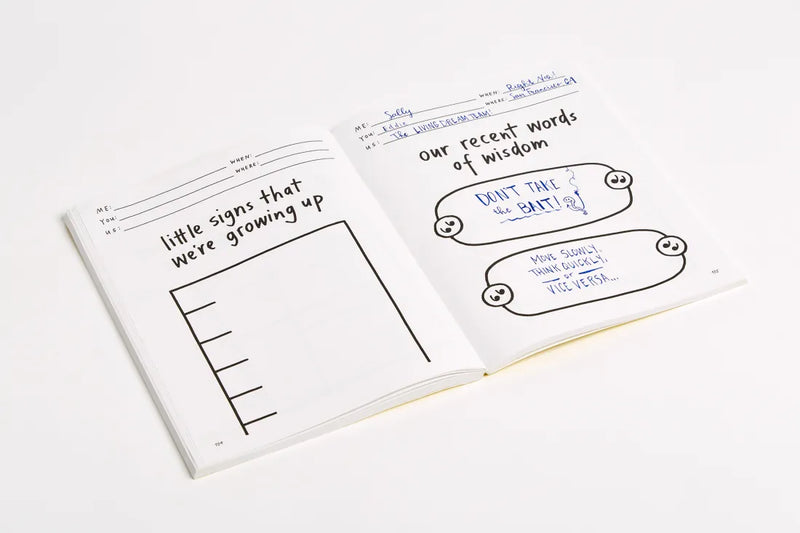 ME:
YOU:
US:
WHEN:
WHERE:
little signs that
we're growing up
ME: Sally
YOU: Eddie
US: The LIVING DREAM TEAM!
WHEN: Right Now!
WHERE: San Francisco CA
our recent words
of wisdom
DON'T TAKE
the BAIT!
MOVE SLOWLY,
THINK QUICKLY,
or
VICE VERSA...